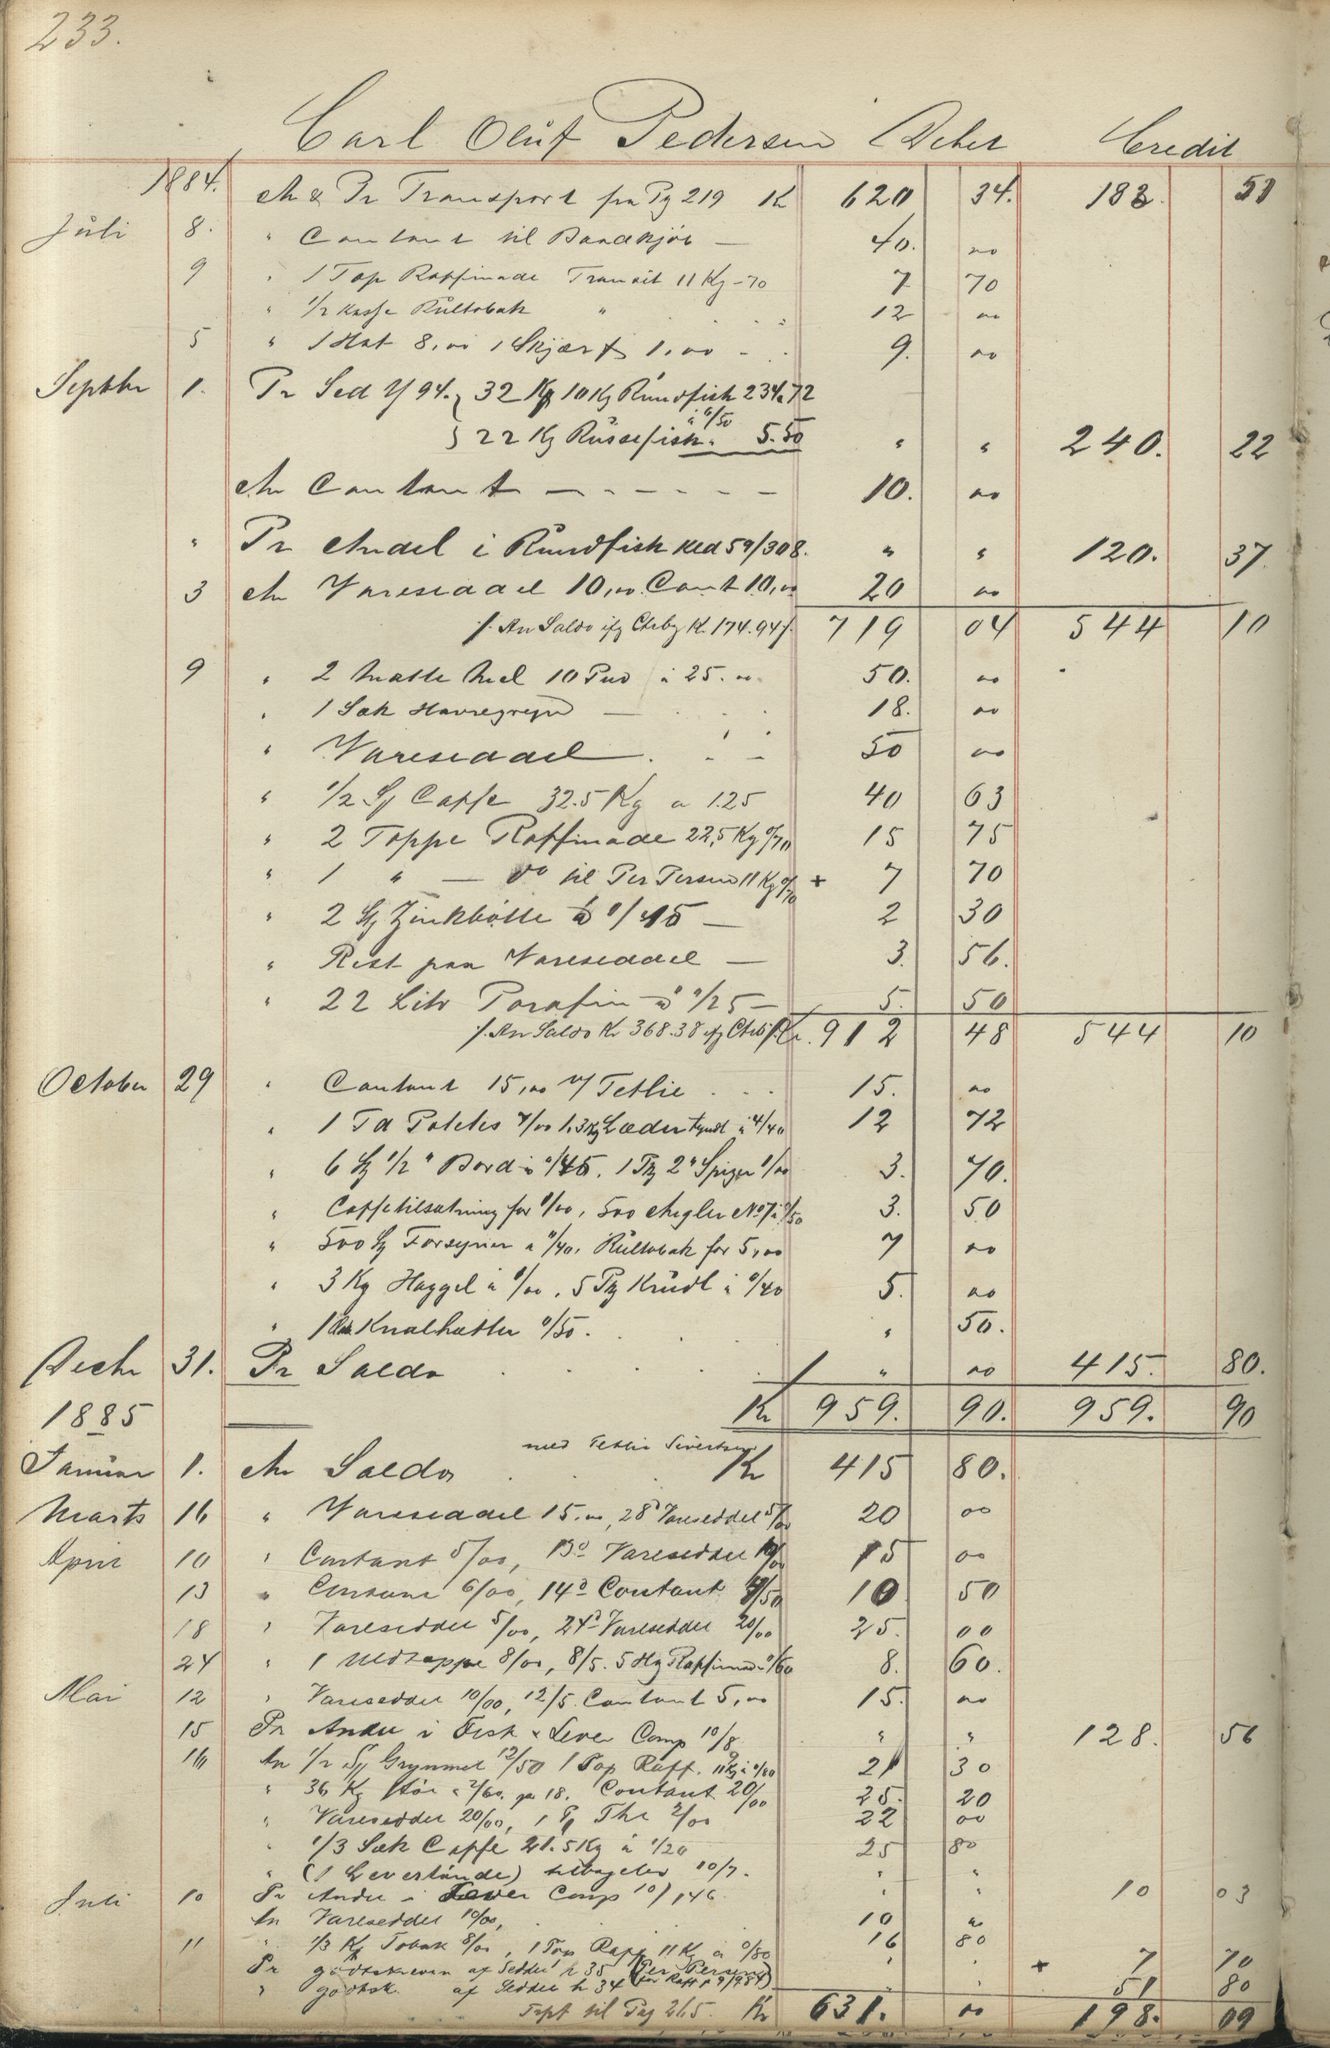 233.
Carl Oluf Pedersen Debet Credit
1884. An & Pr Transport fra Pg 219 Kr 620 34. 183. 51
Juli 8. " Contant til Baadkjøb — 40. 00
9 " 1 Top Raffinade Transit 11 Kg - 70 7 70
" 1/2 Kasse Rultobak " 12 00
5 " 1 Hat 8,00 1 Skjærf 1,00 - 9. 00
Septbr 1. Pr Sed 4/94. 32 Kg 10 Kg Rundfisk 234.72
22 Kg Russefisk à 0/50 5.50 " " 240. 22
An Contant — — — 10. 00
" Pr Andel i Rundfisk Ked 59/308. " " 120. 37
3 An Vareseddel 10,00 Cont 10,00 20 00
/. An Saldo ifg Ctrbg Kr. 174.94 /. 719 04 544 10
9 " 2 Matte Mel 10 Pud à 25.00 50. 00
" 1 Sæk Havregryn — 18. 00
" Vareseddel 50 00
" 1/2 Sj Caffe 32.5 Kg a 1.25 40 63
" 2 Toppe Raffinade 22,5 Kg 0/70 15 75
" 1 " — do til Per Persen 11 Kg 0/70 + 7 70
" 2 St Zinkbøtte à 1/15 — 2 30
" Rest paa Vareseddel — 3. 56.
" 22 Litr Parafin à 0/25 — 5. 50
/. An Saldo Kr 368.38 ifg Ctrb /. Kr. 912 48 544 10
October 29 " Contant 15,00 v/ Tetlie 15. 00
" 1 Td Potetes 7/00 1.3 Kg Læder tyndt à 4/40 12 72
" 6 St 1/2 " Bord à 0/45. 1 Pk 2" Spiger 1/00 3. 70.
" Caffetilsætning for 1/00, 500 Angler No 7 à 0/50 3. 50
" 500 St Forsyner à 0/40. Rultobak for 5,00 7 00
" 3 Kg Haggel à 1/00. 5 Pk Krudt à 0/40 5. 00
" 1 Knalhætter 0/50. " 50.
Decbr 31. Pr Saldo " 00 415. 80.
1885 Kr 959. 90. 959. 90
med Tetlie Sivertsen
Januar 1. An Saldo Kr 415 80.
Marts 16 " Vareseddel 15.00, 28d Vareseddel 5/00 20 00
April 10 " Contant 5/00, 13d Vareseddel 10/00 15 00
13 " Contant 6/00, 14d Contant 4/50 10 50
18 " Vareseddel 5/00, 24d Vareseddel 20/00 25. 00
24 " 1 Uldteppe 8/00, 8/5. 5 Hg Raffinade 0/60 8. 60.
Mai 12 " Vareseddel 10/00, 12/5. Contant 5,00 15. 00
15 Pr Andel i Fisk & Lever Comp 10/8 " " 128. 56
16 An 1/2 Sj Grynmel 12/50 1 Top Raff. 11 Kg à 0/80 21 30
" 36 Kg à 2/60, 18. Contant 20/00 25. 20
" Vareseddel 20/00, 1 Pg The 2/00 22 00
" 1/3 Sæk Caffe 21.5 Kg à 1/20 25 80
" (1 Levertønde) tilbagelev 10/7. " "
Juli 10 Pr Andel i Lever Comp 10/146 " " 10 03
An Vareseddel 10/00, 10 00
11 " 1/3 Kg Tobak 8/00, 1 Top Raff 11 Kg à 0/80 16 80
Pr godtskreven af Seddel № 35 (Per Persen " " + 7 70
" godtsk. af Seddel № 34 (for Raff p 9/9 84) " " 51 80
Tspt til Pag 265. Kr 631. 00 198. 09